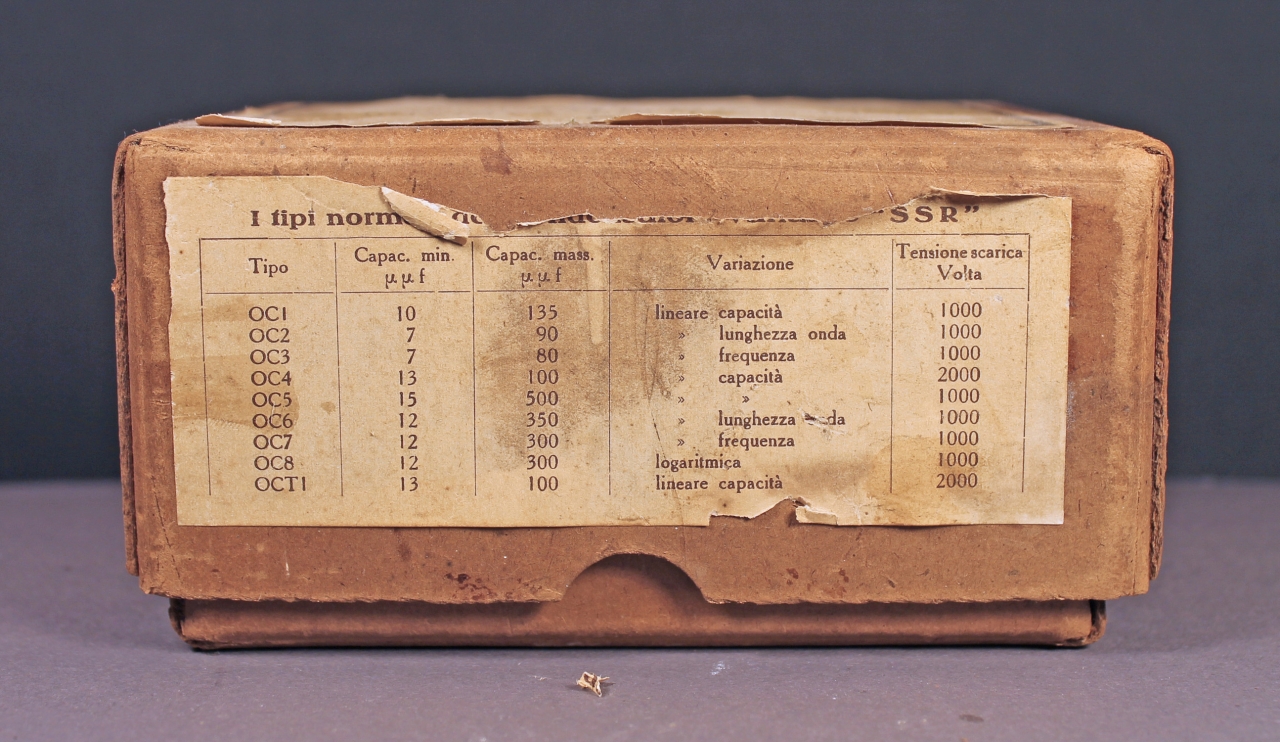 I tipi norm “SSR”
Tipo Capac. min. µµf Capac. mass. µµf Variazione Tensione scarica Volta
OC1 10 135 lineare capacità 1000
OC2 7 90 » lunghezza onda 1000
OC3 7 80 » frequenza 1000
OC4 13 100 » capacità 2000
OC5 15 500 » » 1000
OC6 12 350 » lunghezza 1000
OC7 12 300 » frequenza 1000
OC8 12 300 logaritmica 1000
OCT1 13 100 lineare capacità 2000